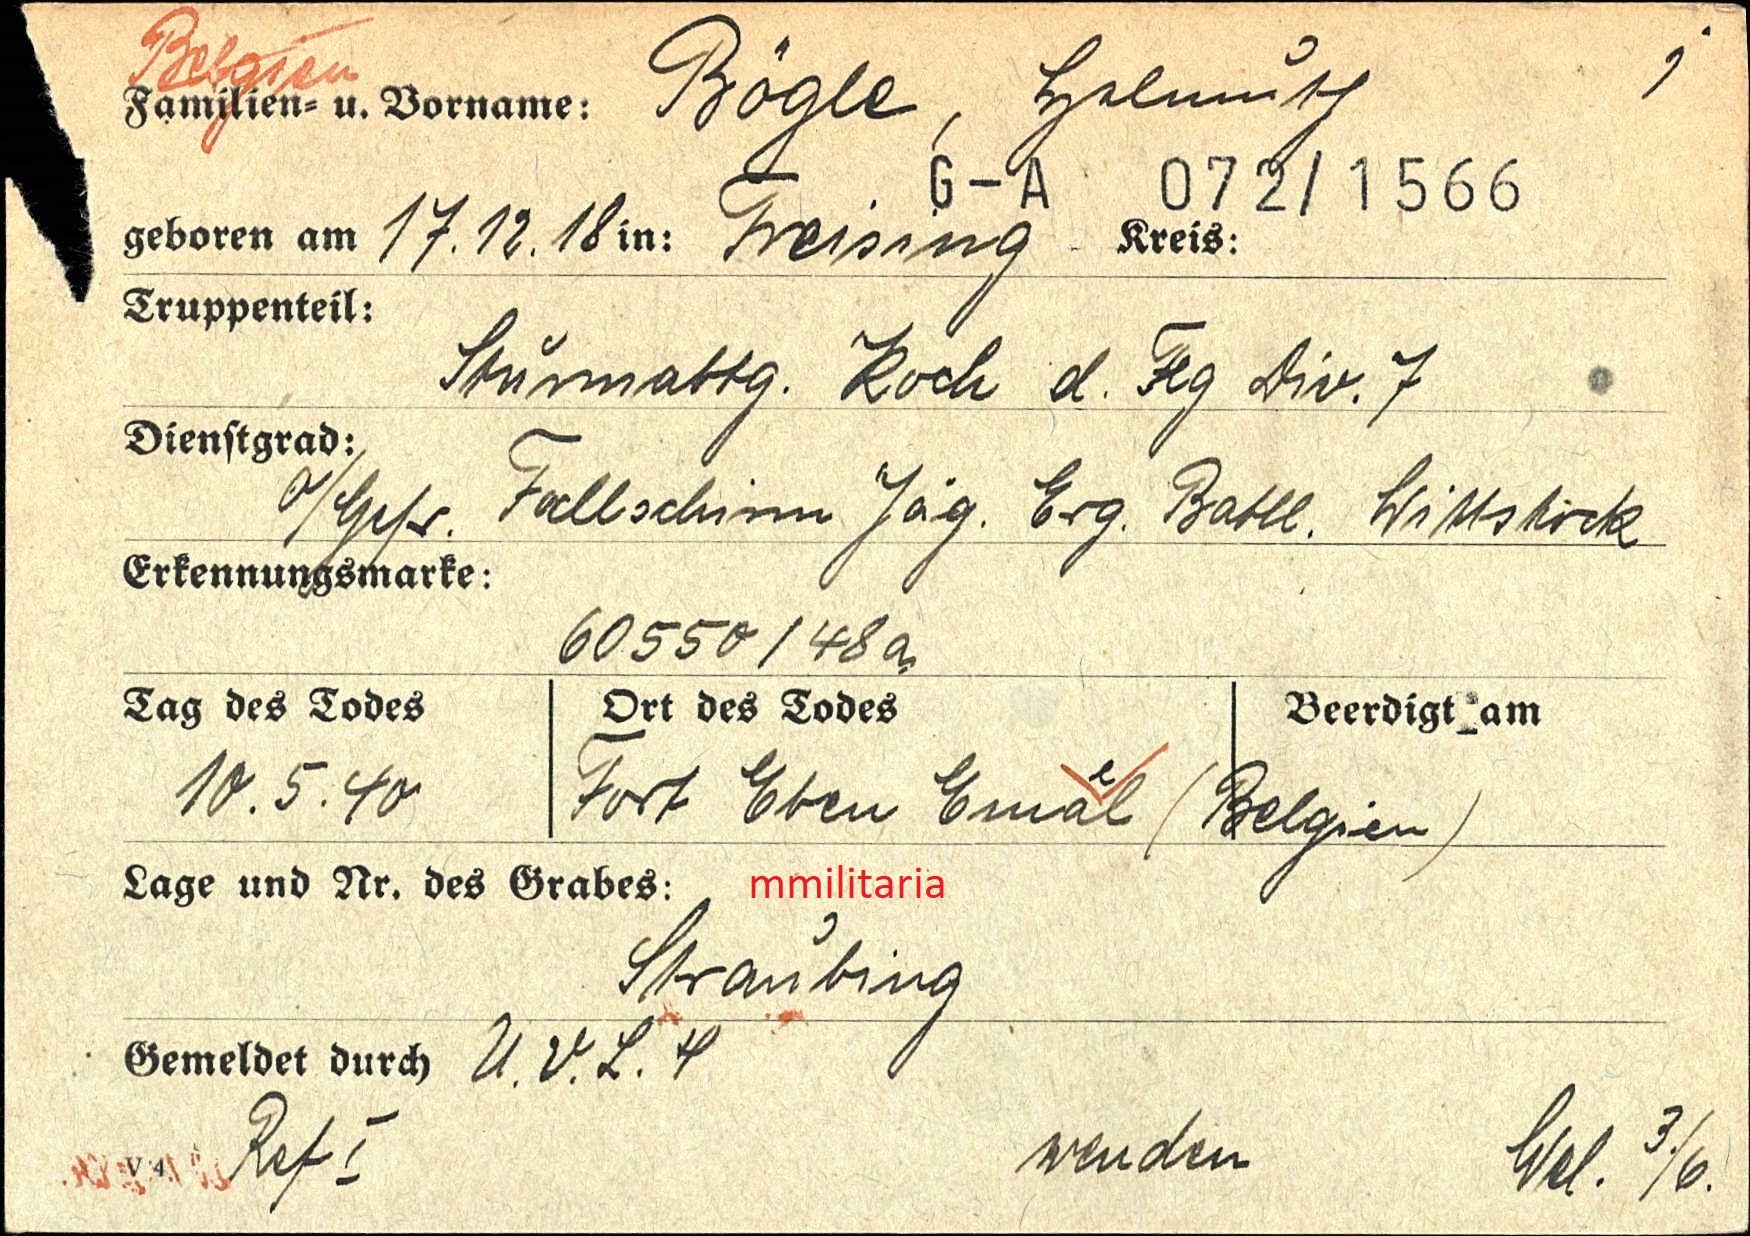 Belgien
Familien- u. Vorname: Bögle, Helmuth
G-A 072/1566
geboren am 17.12.18 in: Freising Kreis:
Truppenteil:
Sturmabtg. Koch d. Flg Div. 7
Dienstgrad:
O/Gefr. Fallschirm Jäg. Erg. Batll. Wittstock
Erkennungsmarke:
60550/48a
Tag des Todes Ort des Todes Beerdigt am
10.5.40 Fort Eben Emaël (Belgien)
Lage und Nr. des Grabes: mmilitaria
Straubing
Gemeldet durch U.V.L. 4
Ref I wenden Wel. 3/6.
V 4